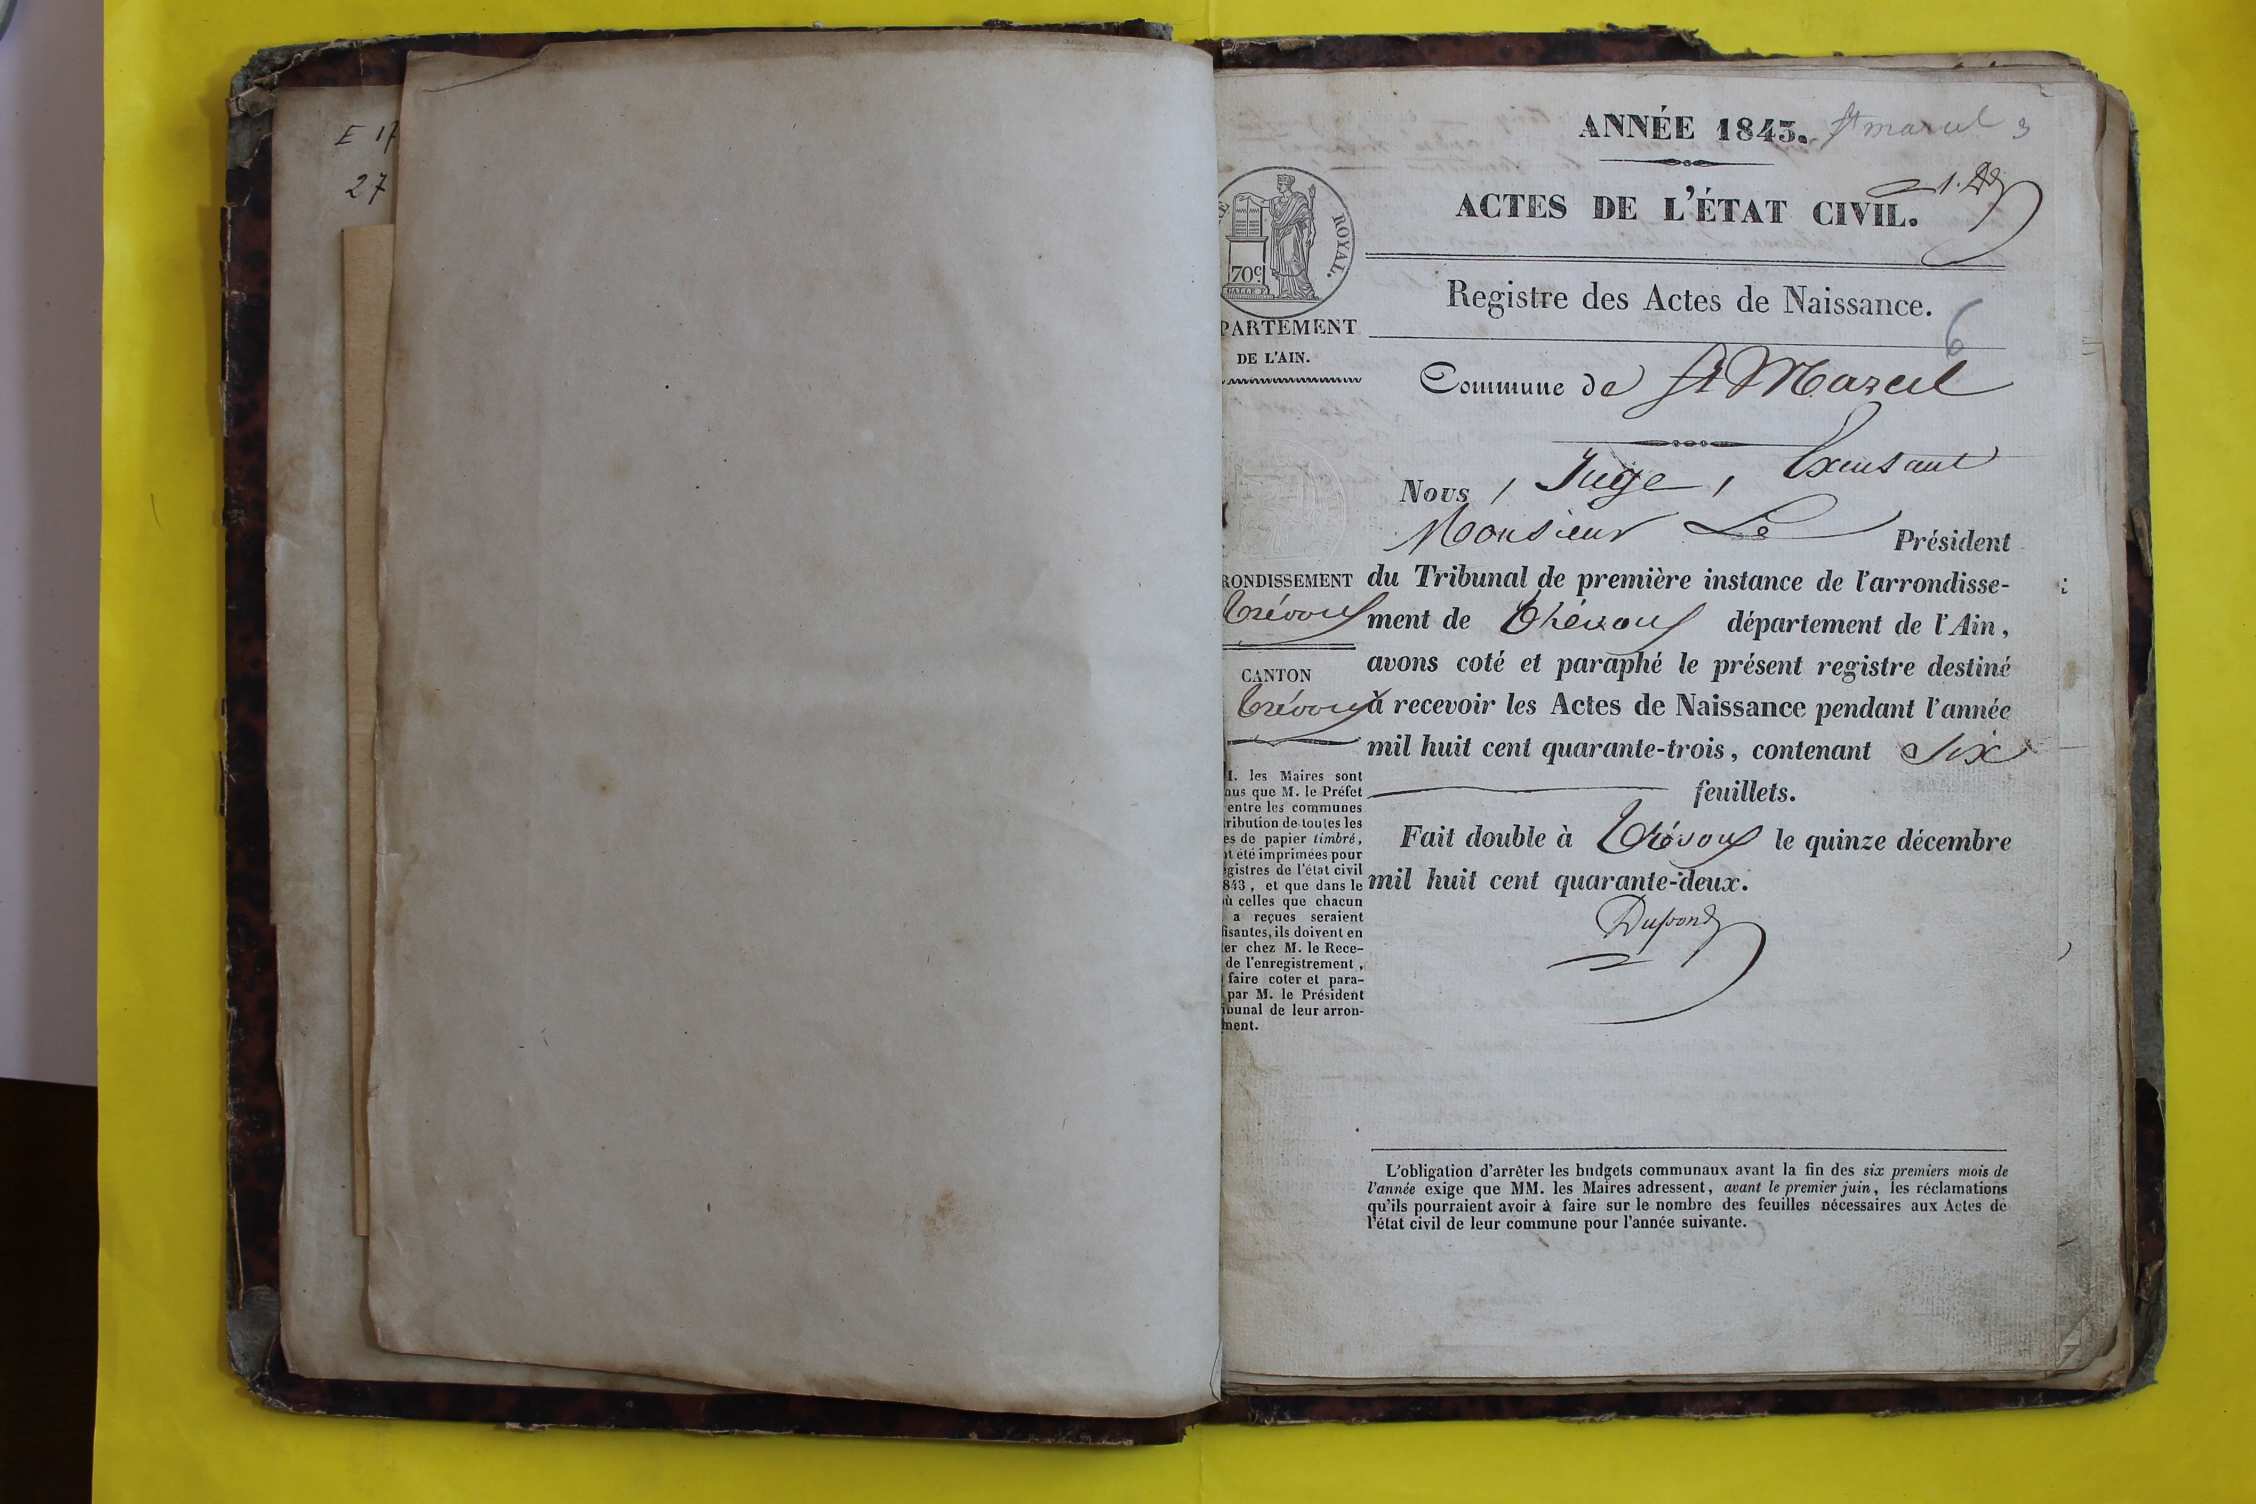 E 17
27
ANNÉE 1843. St marcel 3
ACTES DE L'ÉTAT CIVIL.
Registre des Actes de Naissance.
6
Commune de St Marcel
Nous, Juge, Exensant
Monsieur Le Président
du Tribunal de première instance de l'arrondisse-
ment de Thévoux département de l'Ain,
avons coté et paraphé le présent registre destiné
à recevoir les Actes de Naissance pendant l'année
mil huit cent quarante-trois, contenant Six
feuillets.
Fait double à Trévoux le quinze décembre
mil huit cent quarante-deux.
L'obligation d'arrêter les budgets communaux avant la fin des six premiers mois de
l'année exige que MM. les Maires adressent, avant le premier juin, les réclamations
qu'ils pourraient avoir à faire sur le nombre des feuilles nécessaires aux Actes de
l'état civil de leur commune pour l'année suivante.
ROYAL.
70c
GALLE F.
PARTEMENT
DE L'AIN.
RONDISSEMENT
Trévoux
CANTON
Trévoux
M. les Maires sont
nus que M. le Préfet
entre les communes
tribution de toutes les
es de papier timbré,
nt été imprimées pour
gistres de l'état civil
843, et que dans le
ù celles que chacun
a reçues seraient
fisantes, ils doivent en
ter chez M. le Rece-
de l'enregistrement,
faire coter et para-
par M. le Président
ibunal de leur arron-
ment.